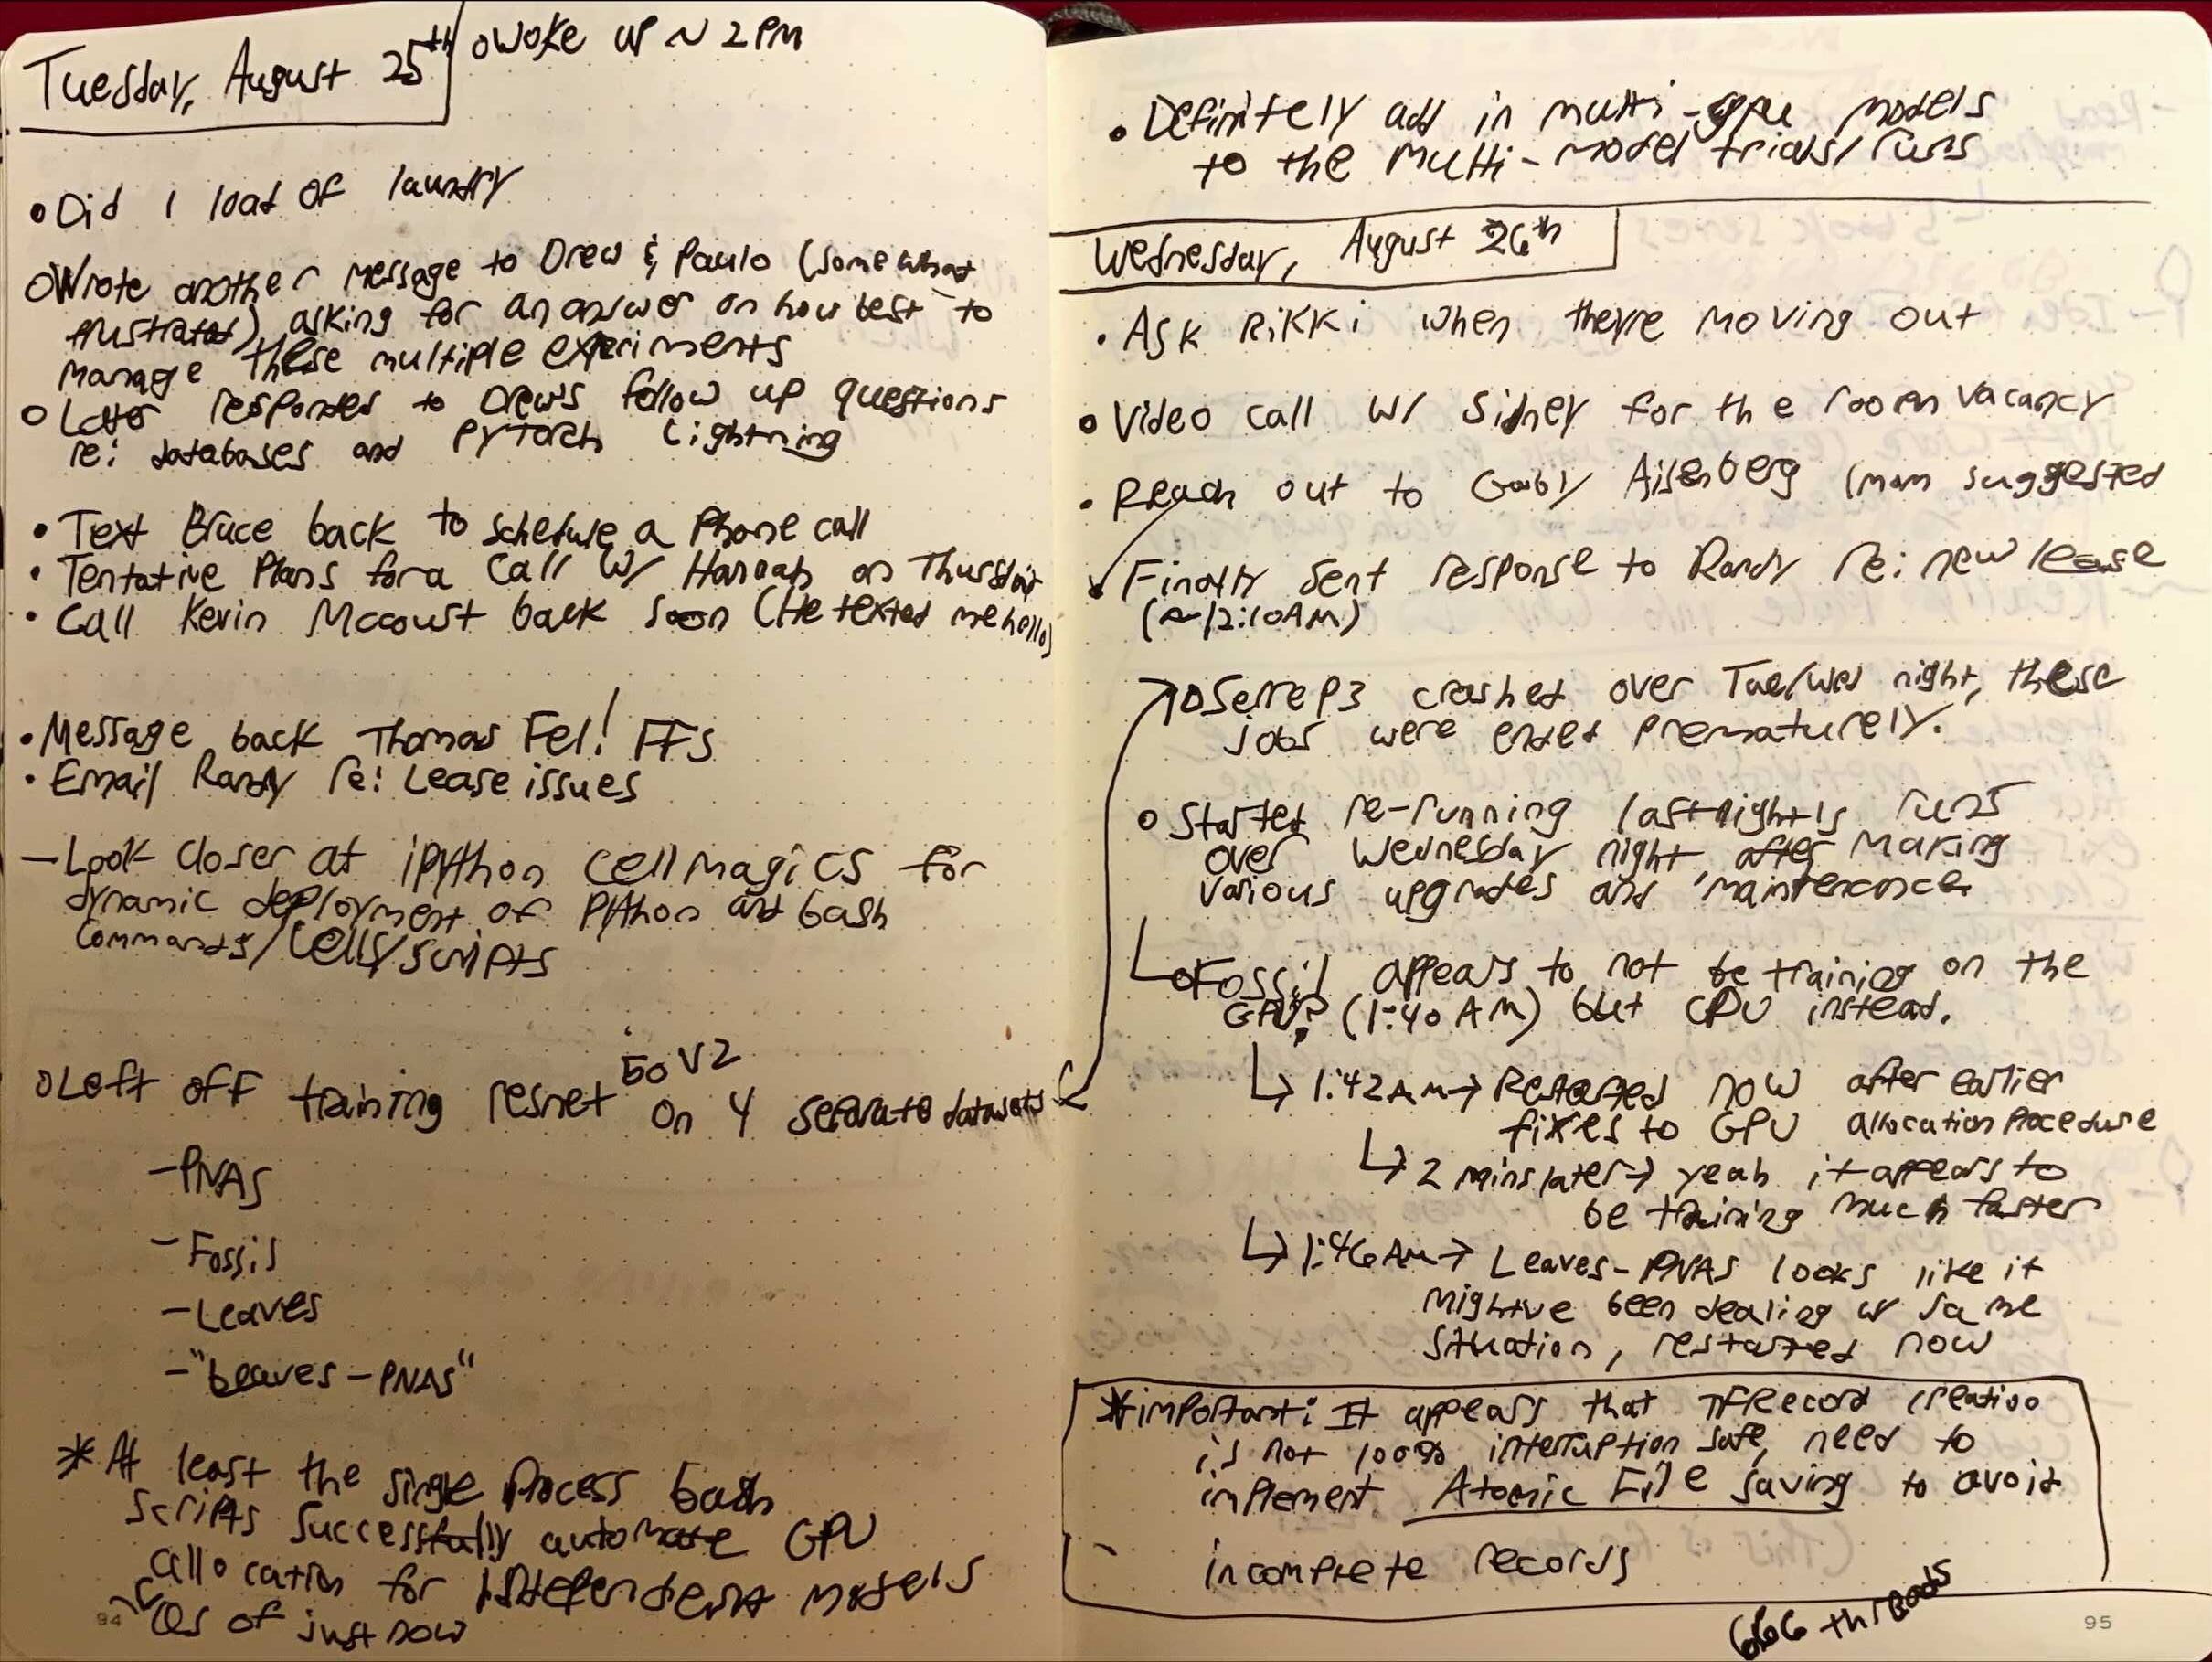 Tuesday, August 25th
o Woke up ~ 2 PM
• Did 1 load of laundry
o Wrote another message to Drew & Paulo (somewhat
frustrated) asking for an answer on how best to
manage these multiple experiments
o Later responded to Drew's follow up questions
re: databases and PyTorch Lightning
• Text Bruce back to schedule a Phone call
• Tentative Plans for a Call w/ Hannah on Thursday
• Call Kevin back soon (He texted me hello)
• Message back Thomas Fel! FFS
• Email Randy re: Lease issues
— Look closer at ipython cell magics for
dynamic deployment of Python and bash
Commands/Cells/scripts
o Left off training resnet 50 V2 on 4 separate datasets
- PNAS
- Fossil
- Leaves
- "Leaves - PNAS"
* At least the single process bash
scripts successfully automate GPU
allocation for independent models
as of just now
94
• Definitely add in multi-gpu models
to the multi-model trials/runs
Wednesday, August 26th
• Ask Rikki when theyre moving out
o Video call w/ Sidney for the room vacancy
• Reach out to Gaby Aisenberg (mom suggested
Finally sent response to Randy re: new lease
(~12:10AM)
o Serrep3 crashed over Tue/Wed night, these
jobs were ended prematurely.
o Started re-running last night's runs
over Wednesday night after making
various upgrades and maintenance.
o Fossil appears to not be training on the
GPU? (1:40 AM) but CPU instead.
↳ 1:42AM → Restarted now after earlier
fixes to GPU allocation procedure
↳ 2 mins later → yeah it appears to
be training much faster
↳ 1:46AM → Leaves-PNAS looks like it
might've been dealing w/ same
situation, restarted now
* important: It appears that TFRecord creation
is not 100% interruption safe, need to
implement Atomic File saving to avoid
incomplete records
666 threads
95